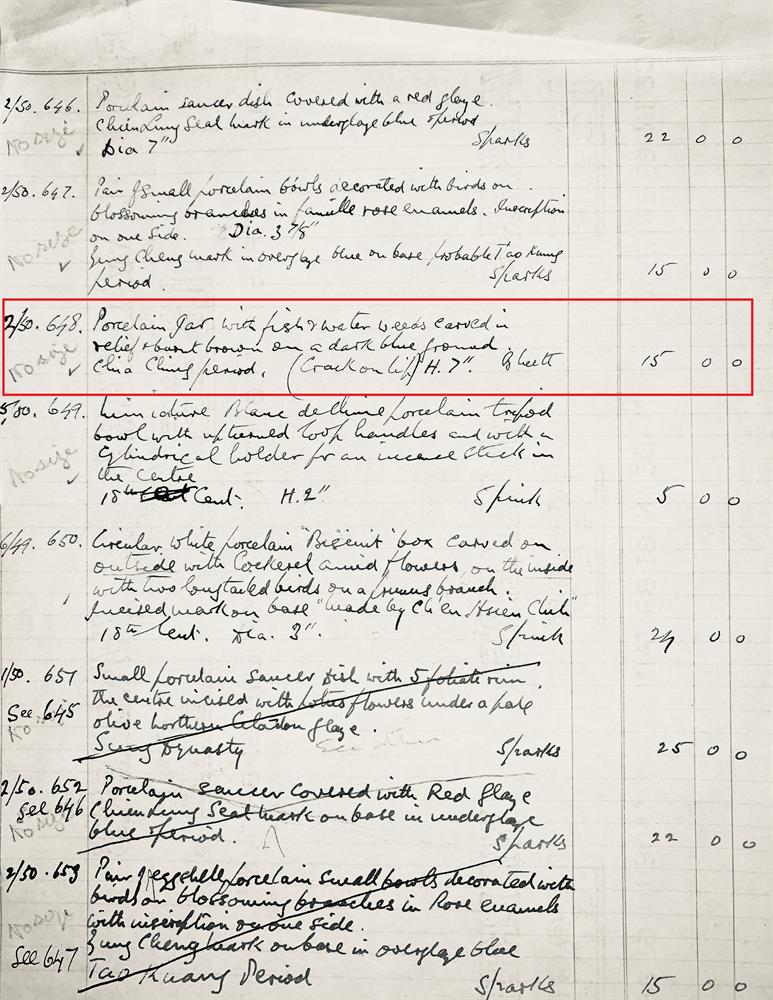 2/50. 646. Porcelain saucer dish covered with a red glaze.
No size Chien Lung Seal mark in underglaze blue & period
✓ Dia 7" Sparks 22 0 0
2/50. 647. Pair of small porcelain bowls decorated with birds on
blossoming branches in famille rose enamels. Inscription
No size on one side. Dia. 3 7/8"
✓ Yung Cheng mark in overglaze blue on base probable Tao Kuang
period. Sparks 15 0 0
2/50. 648. Porcelain Jar with fish & water weeds carved in
No size relief & burnt brown on a dark blue ground.
✓ Chia Ching period. (Crack on lip) H. 7". Bluett 15 0 0
5/50. 649. Miniature Blanc de Chine porcelain tripod
bowl with upturned loop handles and with a
No size cylindrical holder for an incense stick in
✓ the centre
18th Cent. H. 2" Spink 5 0 0
6/49. 650. Circular white porcelain "Biscuit" box carved on
outside with Cockerel amid flowers, on the inside
with two longtailed birds on a prunus branch.
Incised mark on base "made by Ch'en Hsien Chih"
18th Cent. Dia. 3". Spink 24 0 0
1/50. 651 Small porcelain saucer dish with 5 foliate rim,
See 645 the centre incised with lotus flowers under a pale
No olive northern Celadon glaze.
Sung Dynasty Sparks 25 0 0
2/50. 652 Porcelain saucer covered with Red glaze
See 646 Chien Lung Seal mark on base in underglaze
No size blue & period. Sparks 22 0 0
2/50. 653 Pair of eggshell porcelain small bowls decorated with
birds on blossoming branches in Rose enamels
No size with inscription on one side.
See 647 Yung Cheng mark on base in overglaze blue
Tao Kuang Period Sparks 15 0 0